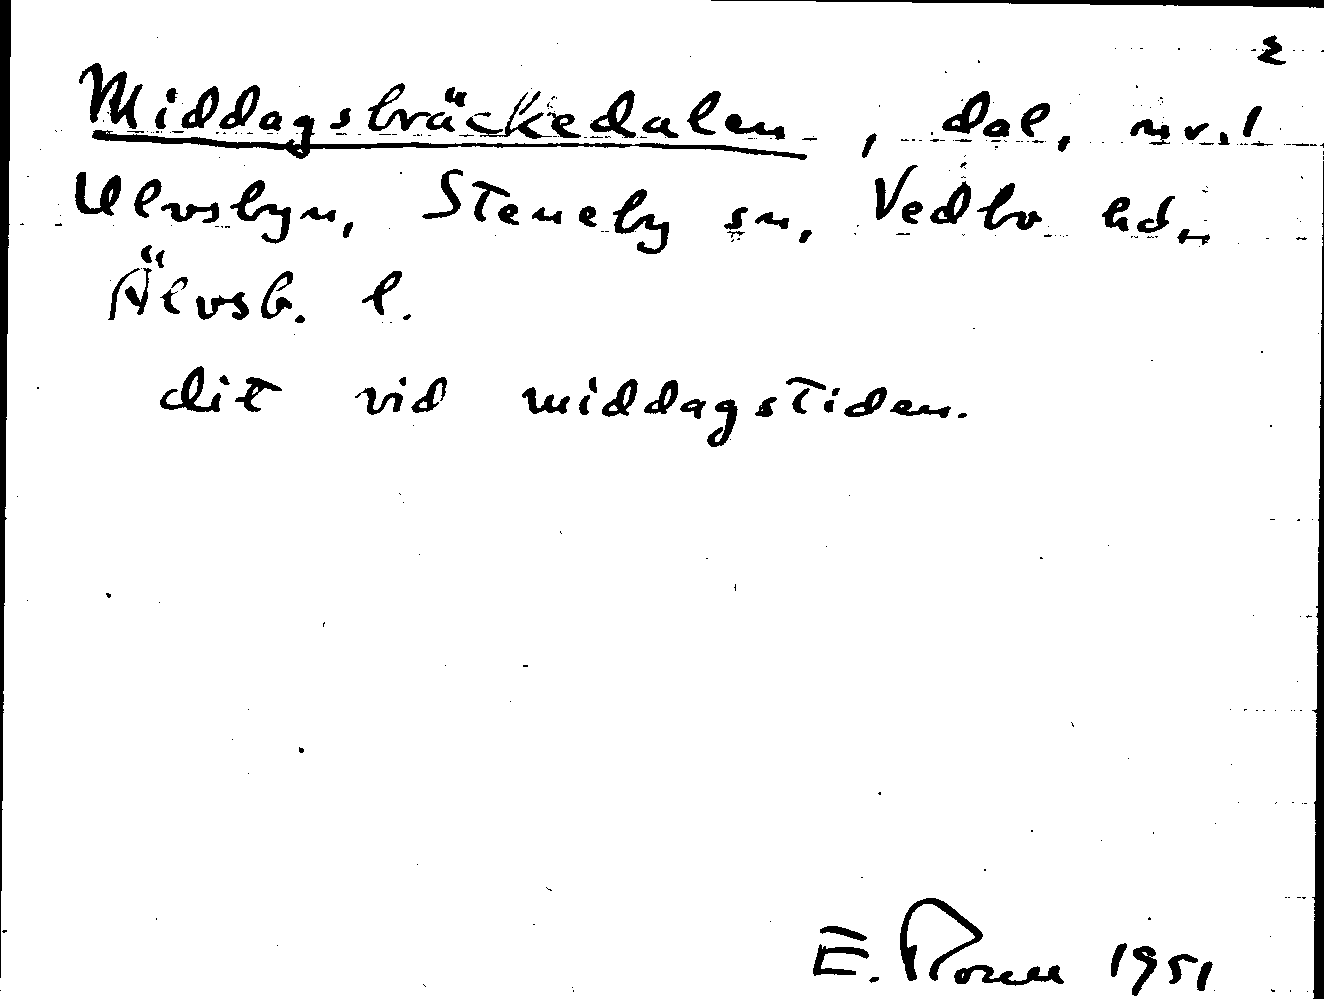 2
Middagsbräckedalen, dal, nr. 1
Ulvsbyn, Steneby sn, Vedbo hd,
Älvsb. l.
dit vid middagstiden.
E. 1951